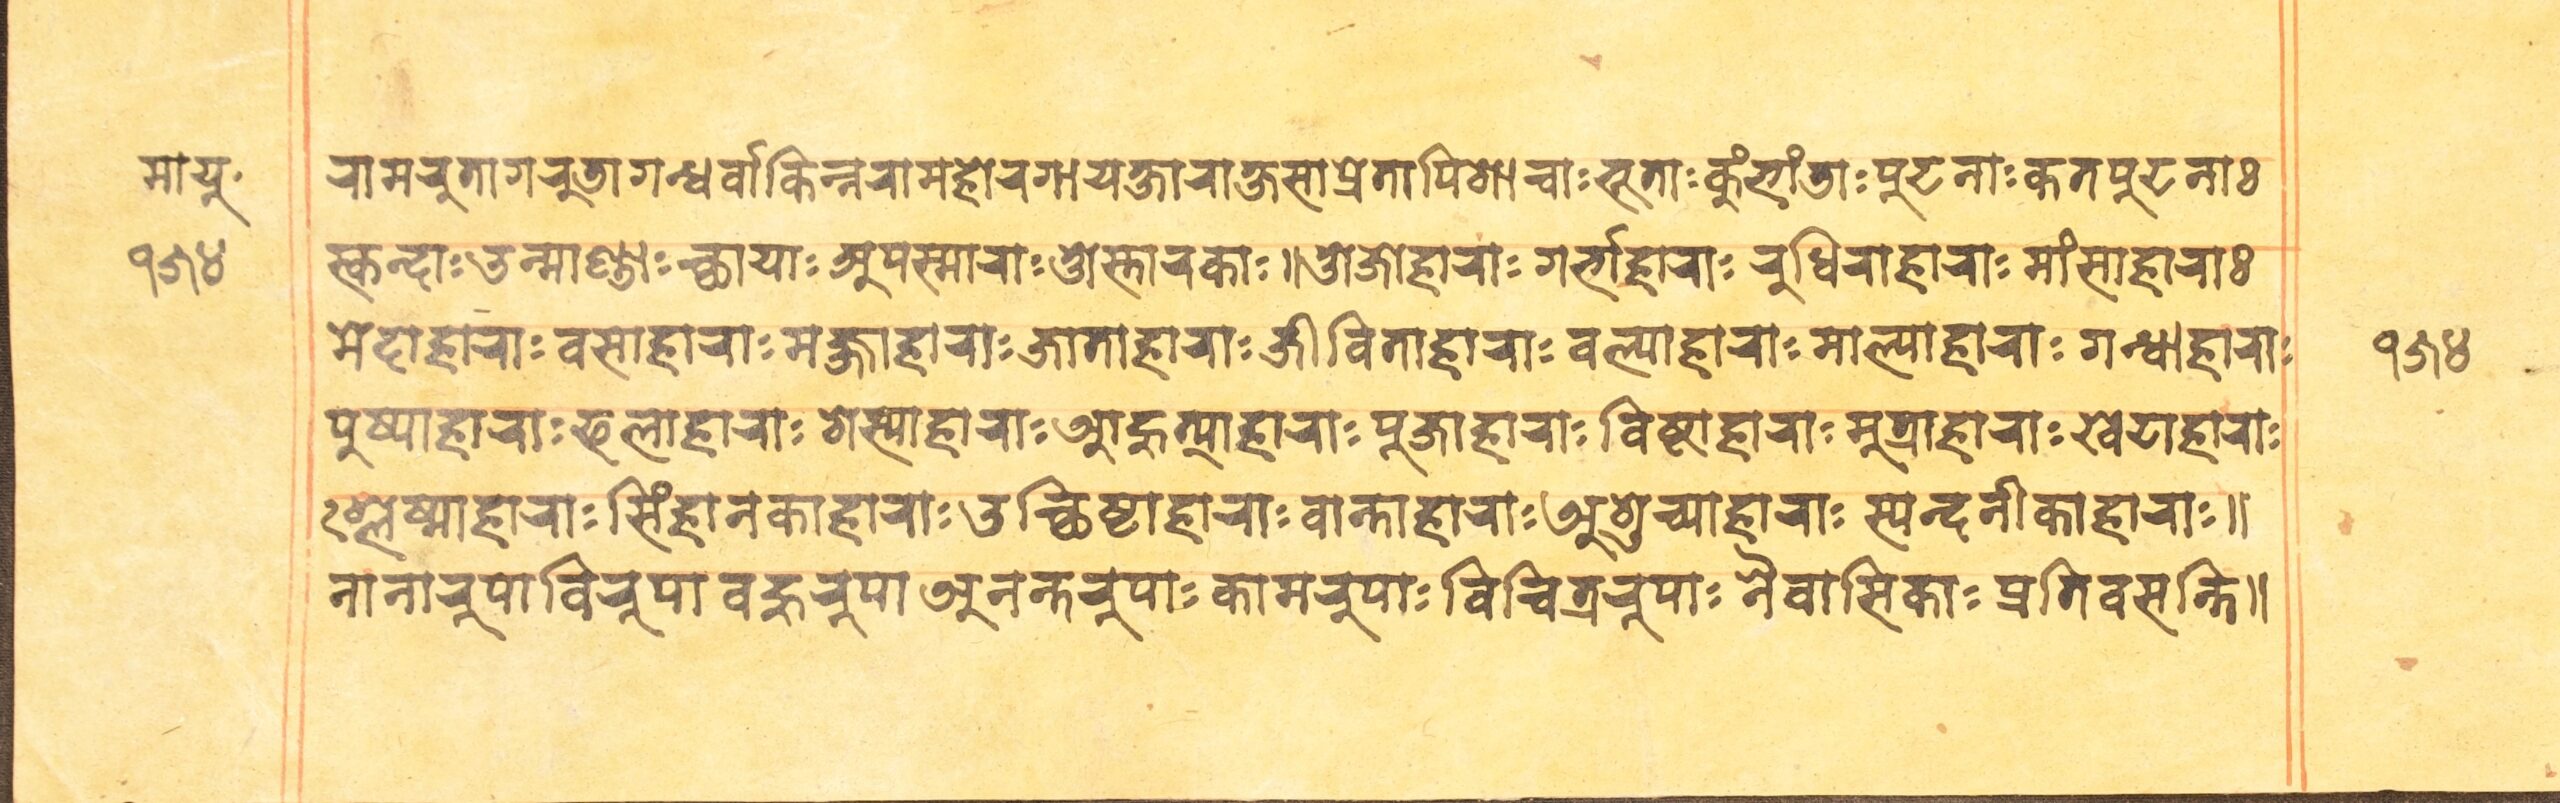 मायु॰ रामरुतागरुडागन्धर्वाकिन्नरामहोरगायक्षाराक्षसाप्रेतापिशाचाः भूताः कुंभांडाः पुटनाः कतपुटनाः
१७४ स्कन्दाः उन्माण्डाः च्छायाः अपस्माराः ओस्तारकाः ॥ ओजोहाराः गर्भाहाराः रुधिराहाराः मांसाहाराः
मेदोहाराः वसाहाराः मज्जाहाराः जाताहाराः जीविताहाराः वल्याहाराः माल्याहाराः गन्धाहाराः १७४
पुष्पाहाराः फलाहाराः शस्याहाराः आहुत्याहाराः पूजाहाराः विष्टाहाराः मुत्राहाराः खेटाहाराः
श्लेष्माहाराः सिंहानकाहाराः उच्छिष्टाहाराः वान्ताहाराः अशुच्याहाराः स्यन्दनीकाहाराः ॥
नानारुपा विरुपा वहुरुपा अनन्तरुपाः कामरुपाः विचित्ररुपाः नैवासिकाः प्रतिवसन्ति ॥